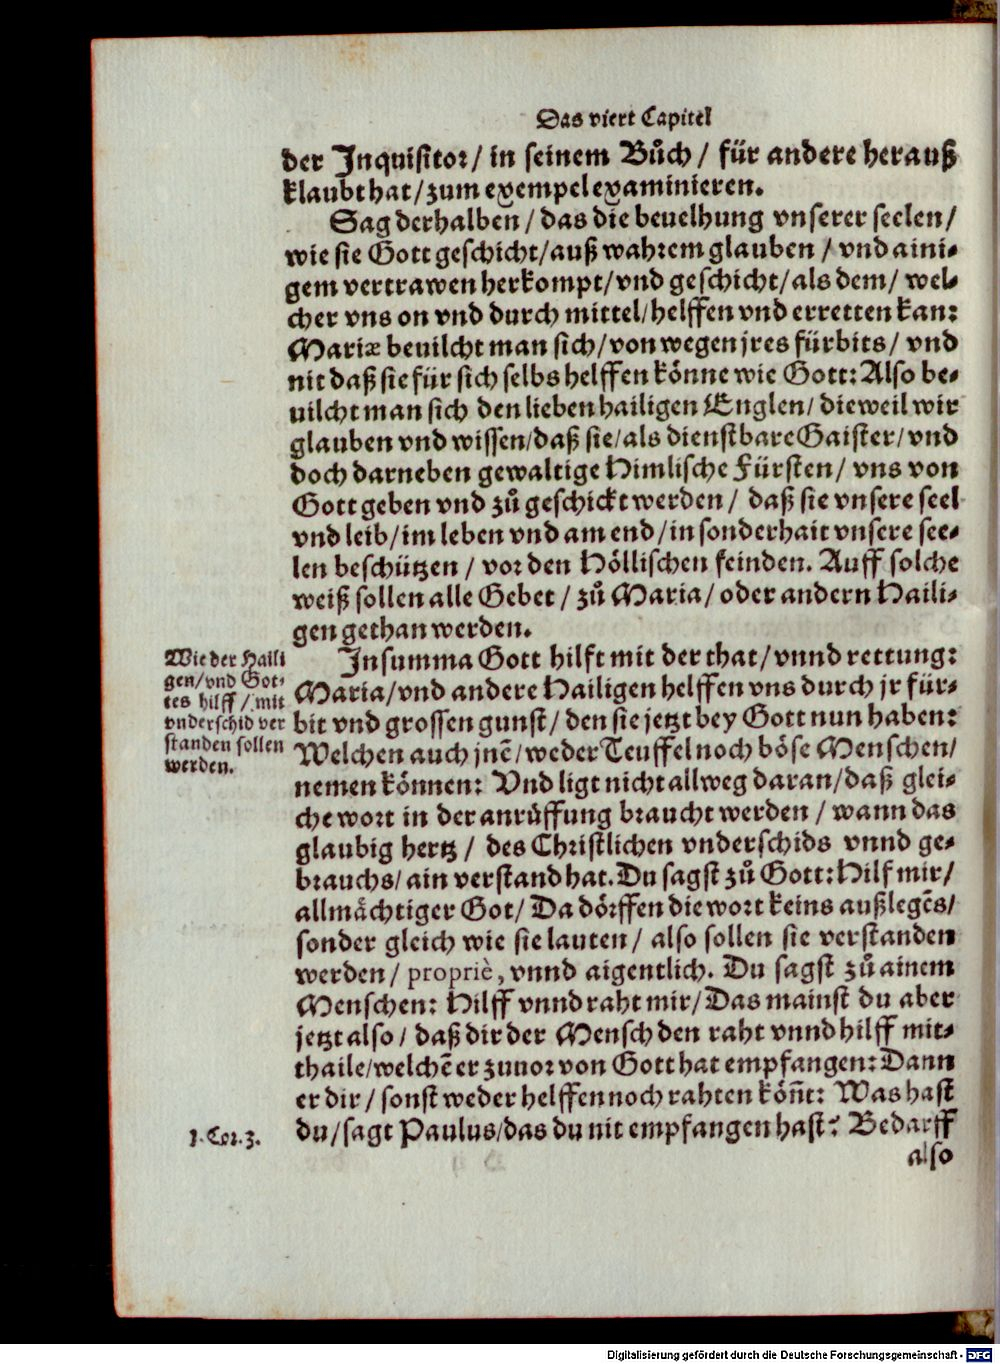 Das viert Capitel
der Inquisitor/ in seinem Bůch/ für andere herauß
klaubt hat/ zum exempel examinieren.
Sag derhalben/ das die beuelhung vnserer seelen/
wie sie Gott geschicht/ auß wahrem glauben/ vnd aini-
gem vertrawen herkompt/ vnd geschicht/ als dem/ wel-
cher vns on vnd durch mittel/ helffen vnd erretten kan:
Mariæ beuilcht man sich/ von wegen jres fürbits/ vnd
nit daß sie für sich selbs helffen könne wie Gott: Also be-
uilcht man sich den lieben hailigen Englen/ dieweil wir
glauben vnd wissen/ daß sie/ als dienstbare Gaister/ vnd
doch darneben gewaltige Himlische Fürsten/ vns von
Gott geben vnd zů geschickt werden/ daß sie vnsere seel
vnd leib/ im leben vnd am end/ in sonderhait vnsere see-
len beschützen/ vor den Höllischen feinden. Auff solche
weiß sollen alle Gebet/ zů Maria/ oder andern Haili-
gen gethan werden.
Wie der Haili
gen/ vnd Got-
tes hilff/ mit
vnderschid ver
standen sollen
werden.
In summa Gott hilft mit der that/ vnnd rettung:
Maria/ vnd andere Hailigen helffen vns durch jr für-
bit vnd grossen gunst/ den sie jetzt bey Gott nun haben:
Welchen auch jnē/ weder Teuffel noch böse Menschen/
nemen können: Vnd ligt nicht allweg daran/ daß glei-
che wort in der anrůffung braucht werden/ wann das
glaubig hertz/ des Christlichen vnderschids vnnd ge-
brauchs/ ain verstand hat. Du sagst zů Gott: Hilf mir/
allmächtiger Got/ Da dörffen die wort keins außlegēs/
sonder gleich wie sie lauten/ also sollen sie verstanden
werden/ propriè, vnnd aigentlich. Du sagst zů ainem
Menschen: Hilff vnnd raht mir/ Das mainst du aber
jetzt also/ daß dir der Mensch den raht vnnd hilff mit-
thaile/ welchē er zuuor von Gott hat empfangen: Dann
er dir/ sonst weder helffen noch rahten köñt: Was hast
1. Cor. 3.
du/ sagt Paulus/ das du nit empfangen hast? Bedarff
also
Digitalisierung gefördert durch die Deutsche Forschungsgemeinschaft - DFG